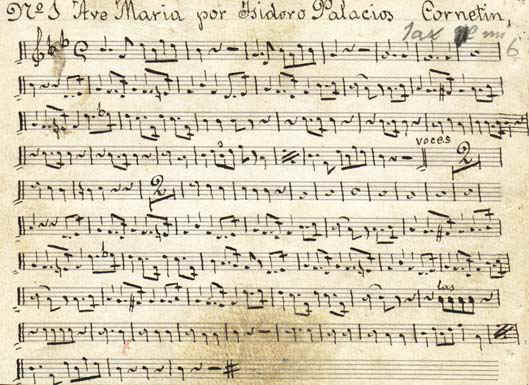 Nº 1 Ave Maria por Isidoro Palacios Cornetin,
Sax
6
3
voces
2
2
las